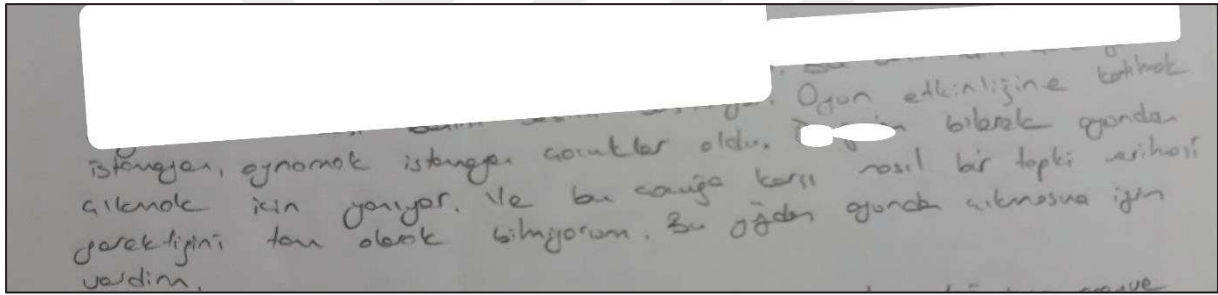 Oyun etkinliğine katılmak
istemeyen, oynamak istemeyen çocuklar oldu. bilerek oyundan
çıkmak için yanıyor. Ve bu çocuğa karşı nasıl bir tepki verilmesi
gerektiğini tam olarak bilmiyorum. Bu yüzden oyundan çıkmasına izin
verdim.